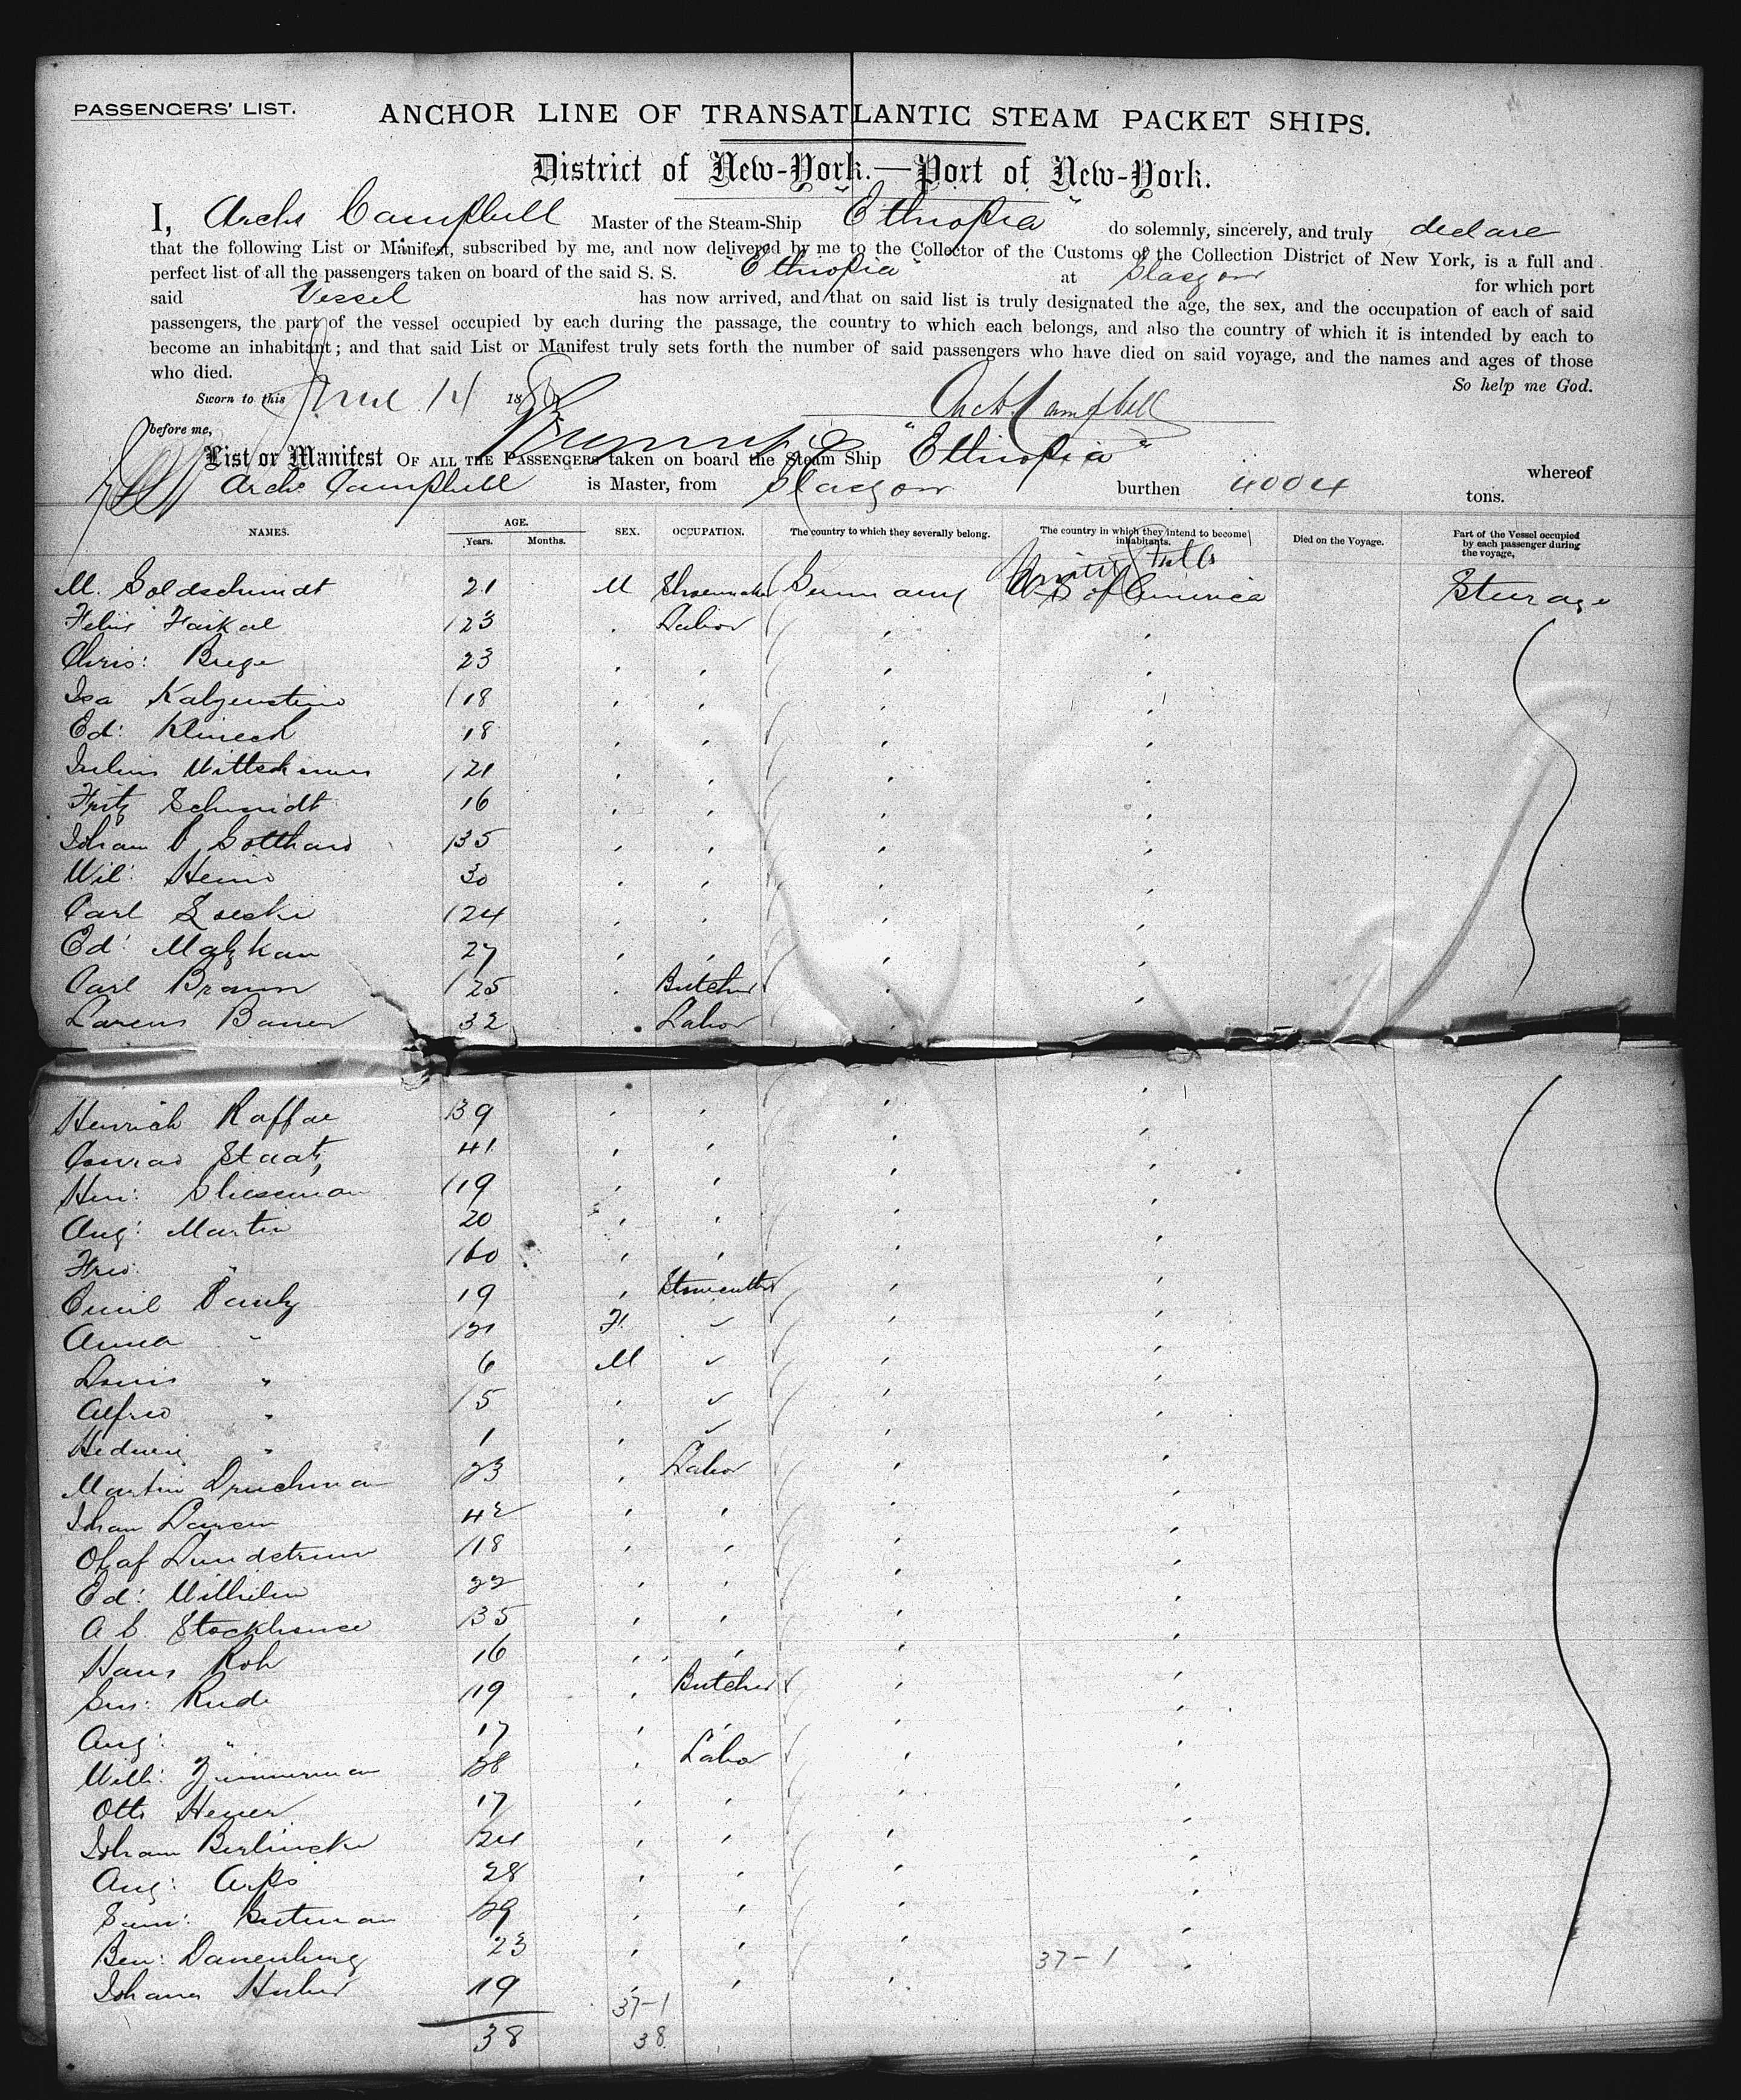 PASSENGERS' LIST.
ANCHOR LINE OF TRANSATLANTIC STEAM PACKET SHIPS.
District of New-York.—Port of New-York.
I, Archd Campbell Master of the Steam-Ship "Ethiopia" do solemnly, sincerely, and truly declare
that the following List or Manifest, subscribed by me, and now delivered by me to the Collector of the Customs of the Collection District of New York, is a full and
perfect list of all the passengers taken on board of the said S. S. "Ethiopia" at Glasgow for which port
said Vessel has now arrived, and that on said list is truly designated the age, the sex, and the occupation of each of said
passengers, the part of the vessel occupied by each during the passage, the country to which each belongs, and also the country of which it is intended by each to
become an inhabitant; and that said List or Manifest truly sets forth the number of said passengers who have died on said voyage, and the names and ages of those
who died. So help me God.
Sworn to this June 14 18 Archd Campbell
before me,
List or Manifest OF ALL THE PASSENGERS taken on board the Steam Ship "Ethiopia" whereof
Archd Campbell is Master, from Glasgow burthen 4004 tons.
NAMES. AGE. Years. Months. SEX. OCCUPATION. The country to which they severally belong. The country in which they intend to become inhabitants. Died on the Voyage. Part of the Vessel occupied by each passenger during the voyage,
M. Goldschmidt 21 M Shoemaker Germany United States of America Steerage
23 Labor
Chris: Brege 23
Isa 18
Ed: 18
Julius 21
Fritz Schmidt 16
Johan Gotthard 35
Wil: Hein 30
Carl 24
Ed: 27
Carl Braun 25 Butcher
Bauer 32 Labor
Henrich 39
Conrad Staatz 41
Hen: 19
Aug: Martin 20
Fred: " 60
Emil Pauly 19 Stonecutter
Anna " 21 F.
Louis " 6 M
Alfred " 5
Hedwig " 1
Martin Druchman 23 Labor
Johan 42
Olaf Lundstrum 18
Ed: Wilhelm 22
Stockhouse 35
Hans Roh 16
Rude 19 Butcher
Aug: " 17
Will: Zimmerman 28 Labor
Otto 17
Johan Berlincke 24
Aug: Arps 28
29
Ben: Danenburg 23 37-1
Johann Huber 19
37-1
38 38